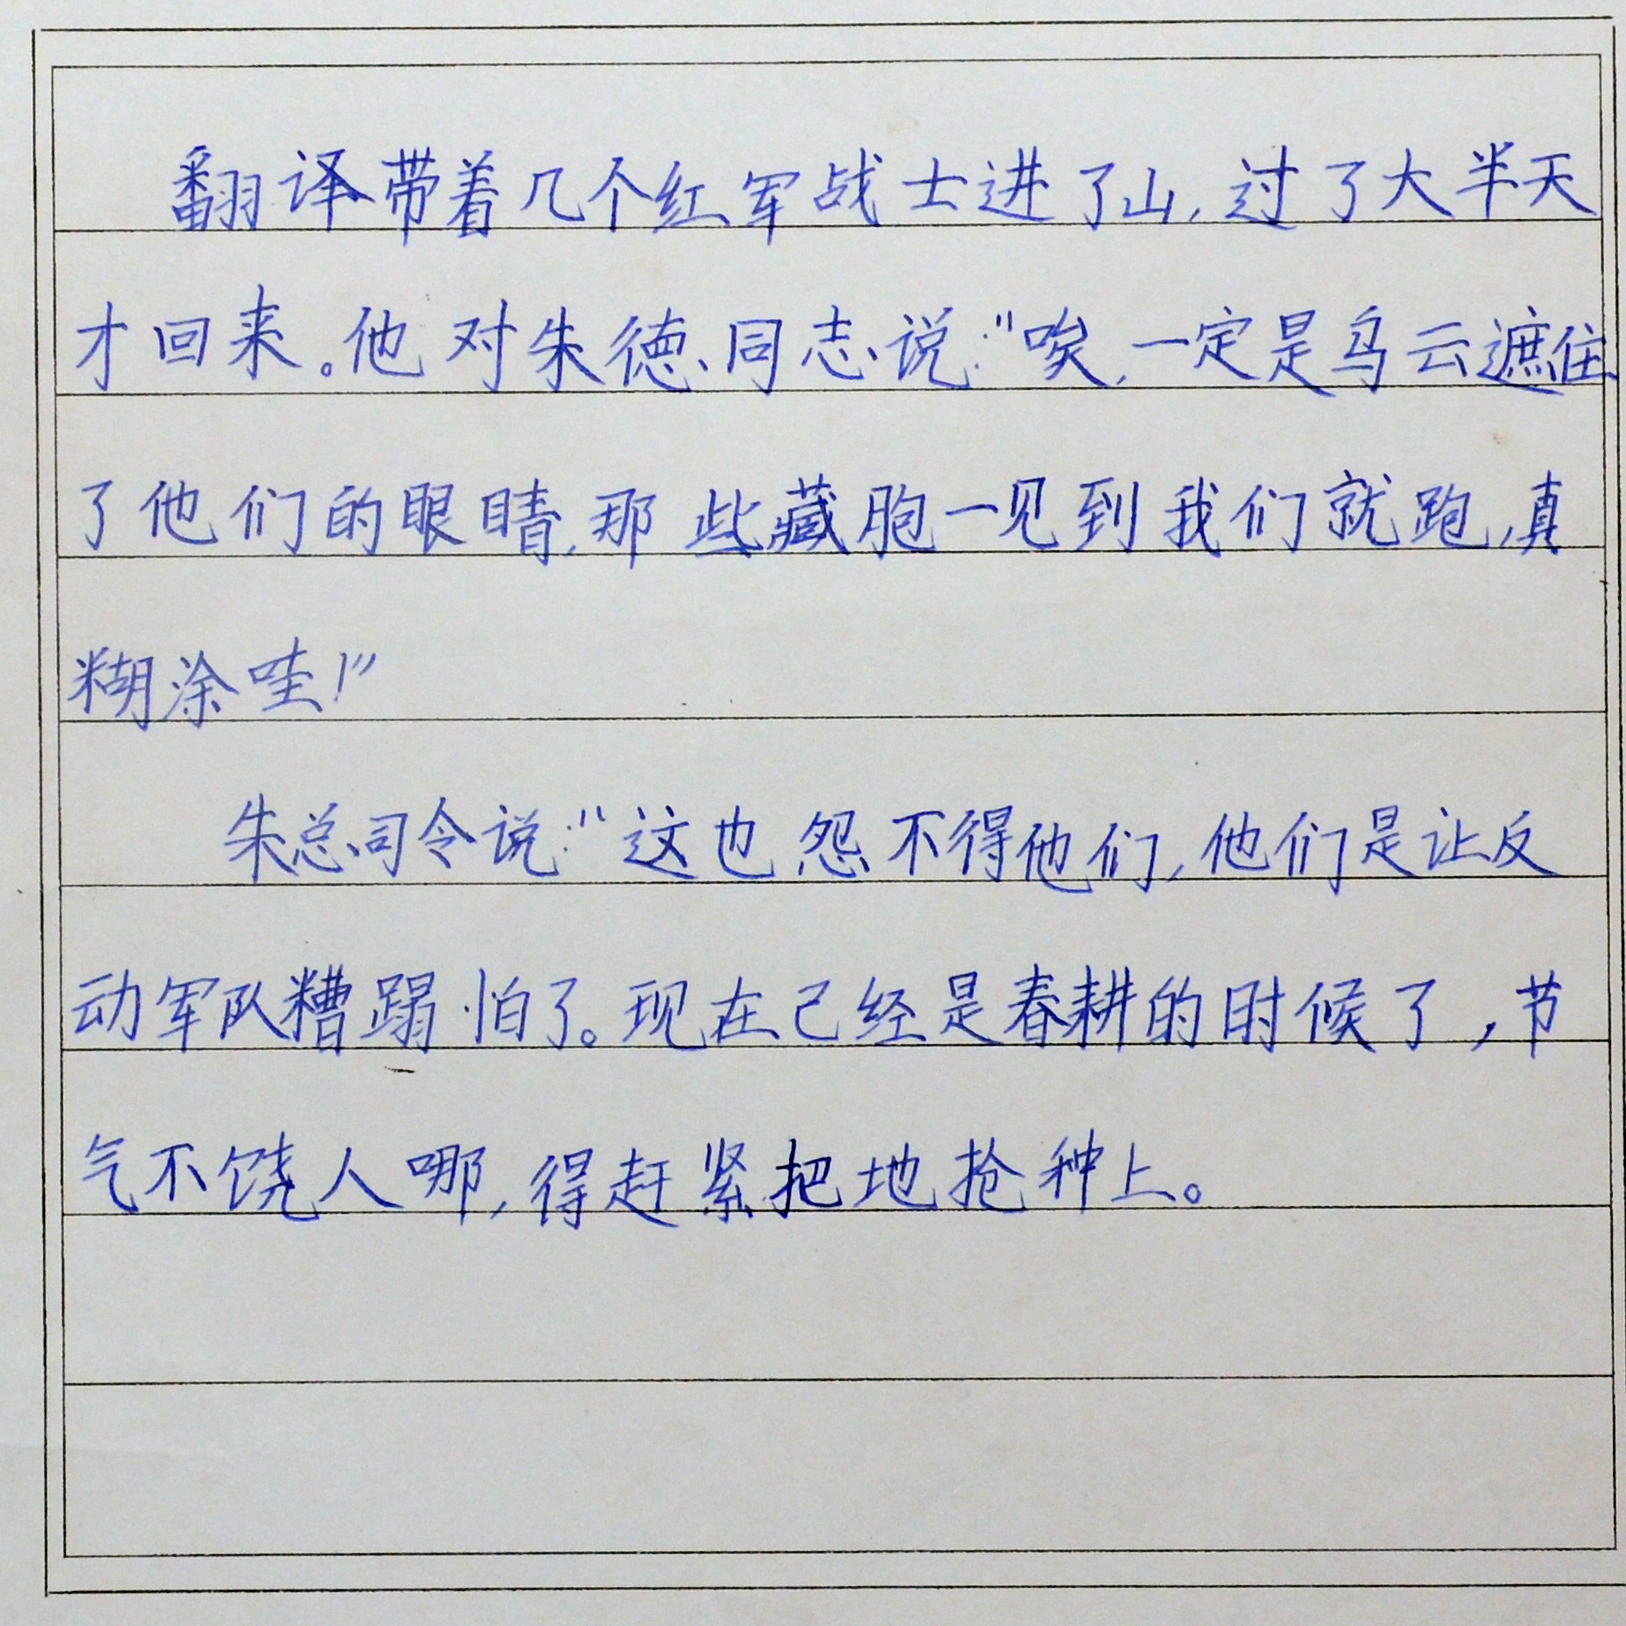 翻译带着几个红军战士进了山,过了大半天
才回来。他对朱德同志说:"唉,一定是乌云遮住
了他们的眼睛,那些藏胞一见到我们就跑,真
糊涂哇!"
朱总司令说:"这也怨不得他们,他们是让反
动军队糟蹋怕了。现在已经是春耕的时候了,节
气不饶人哪,得赶紧把地抢种上。